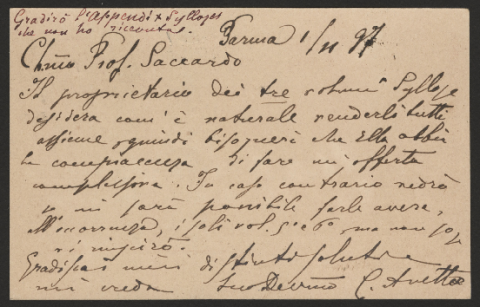 Gradirò l'Appendix Sylloges
che non ho ricevuta.
Parma 1/11 97
Ch.mo Prof. Saccardo
Il proprietario dei tre volumi Sylloge
desidera com'è naturale venderli tutti
assieme e quindi bisognerà che Ella abbia
la compiacenza di fare un'offerta
complessiva. In caso contrario vedrò
se mi sarà possibile farle avere,
all'occorrenza, i soli vol. 5° e 6° ma non so se
vi riuscirò.
Gradisca i miei distinti saluti e
mi creda Suo Dev.mo C. Avetta